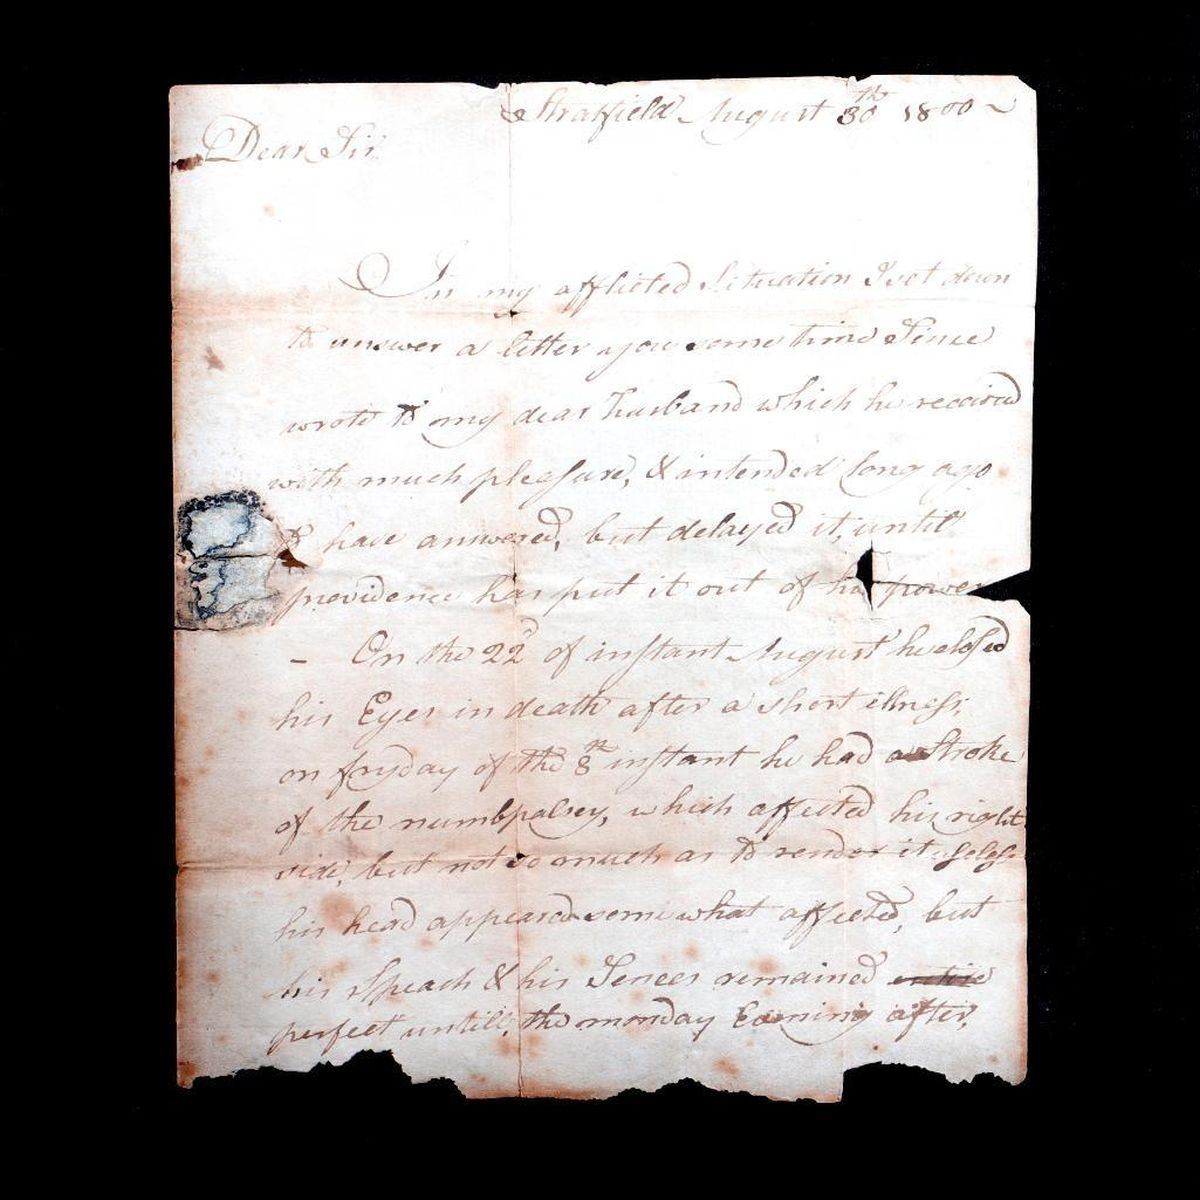 Stratfield August 30th 1800
Dear Sir
In my afflicted Situation I set down
to answer a letter you some time Since
wrote to my dear husband which he received
with much pleasure, & intended long ago
to have answered, but delayed it, until
providence has put it out of his power
- On the 22d of instant August he closed
his Eyes in death after a short illness,
on fryday of the 8th instant he had a Stroke
of the numbpalsey, which affected his right
side, but not so much as to render it useless
his head appeared some what affected, but
his Speach & his Sences remained entire
perfect untill, the monday Evening after,